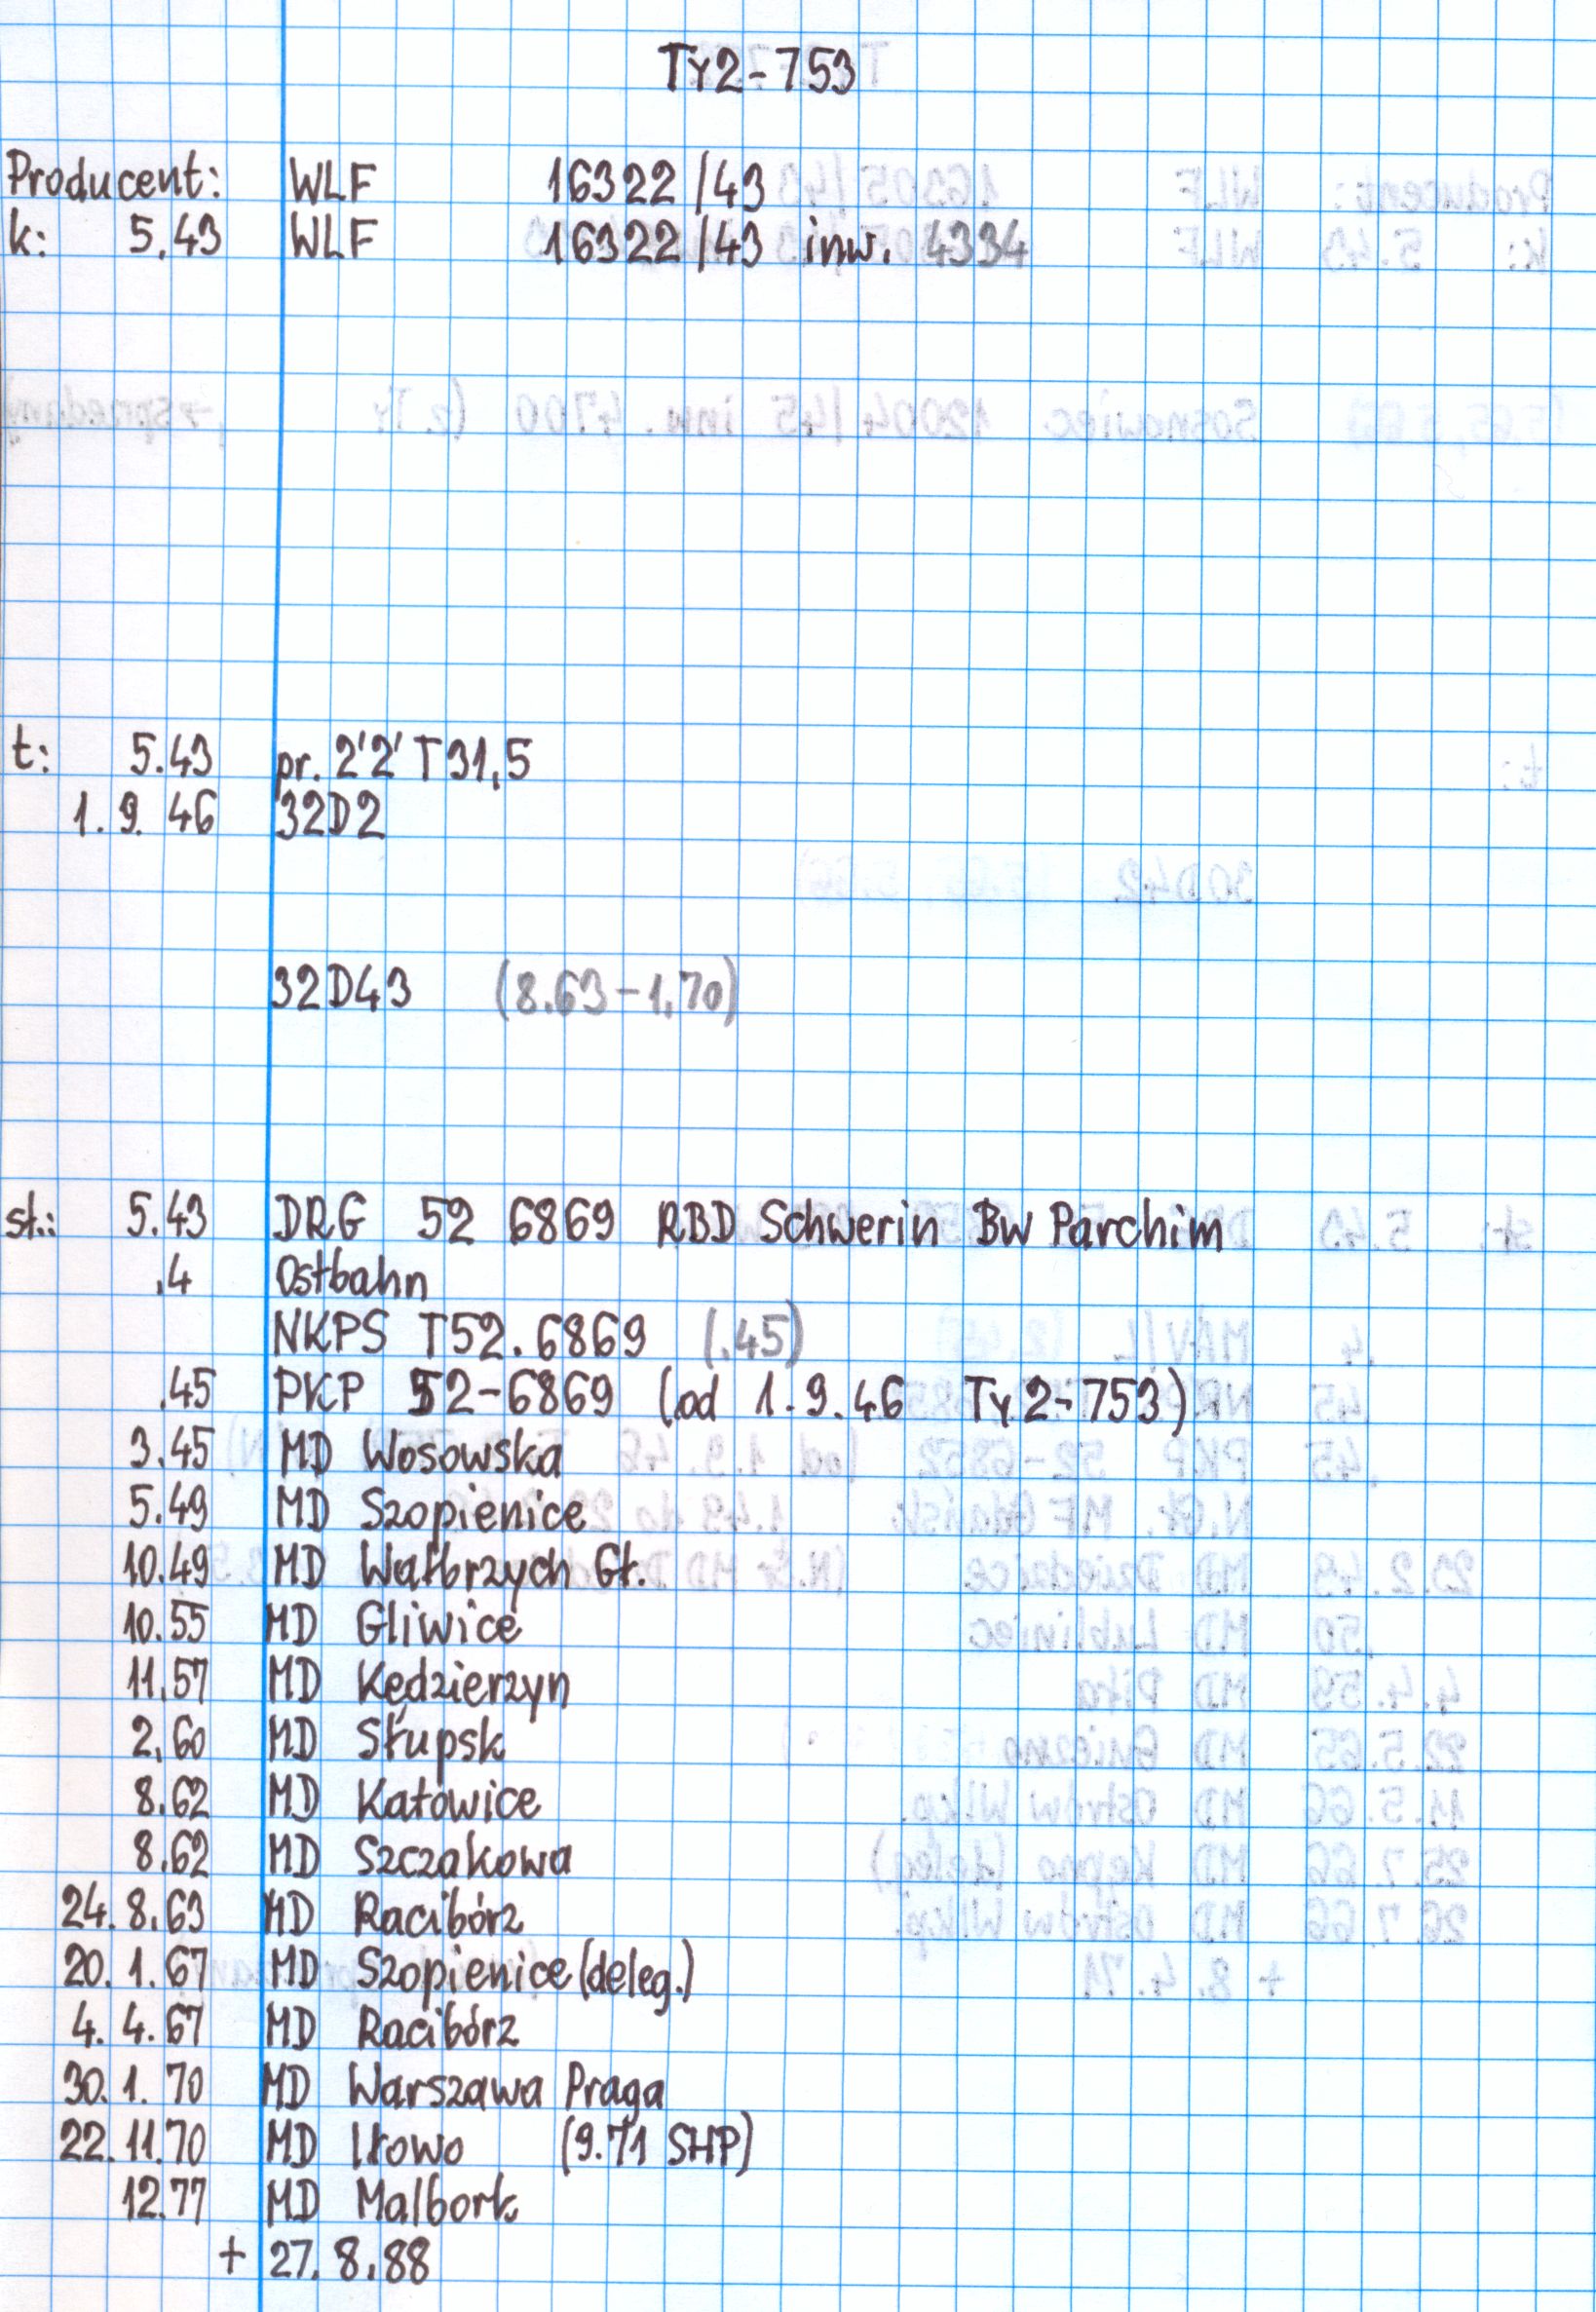 Ty2-753
Producent: WLF 16322/43
k: 5.43 WLF 16322/43 inw. 4334
t: 5.43 pr. 2'2' T31,5
1.9.46 32D2
32D43 (8.63-1.70)
st.: 5.43 DRG 52 6869 RBD Schwerin Bw Parchim
.4 Ostbahn
NKPS T52.6869 (.45)
.45 PKP 52-6869 (od 1.9.46 Ty2-753)
3.45 MD Wosowska
5.49 MD Szopienice
10.49 MD Wałbrzych Gł.
10.55 MD Gliwice
11.57 MD Kędzierzyn
2.60 MD Słupsk
8.62 MD Katowice
8.62 MD Szczakowa
24.8.63 MD Racibórz
20.1.67 MD Szopienice (deleg.)
4.4.67 MD Racibórz
30.1.70 MD Warszawa Praga
22.11.70 MD Iłowo (9.71 SHP)
12.77 MD Malbork
+ 27.8.88